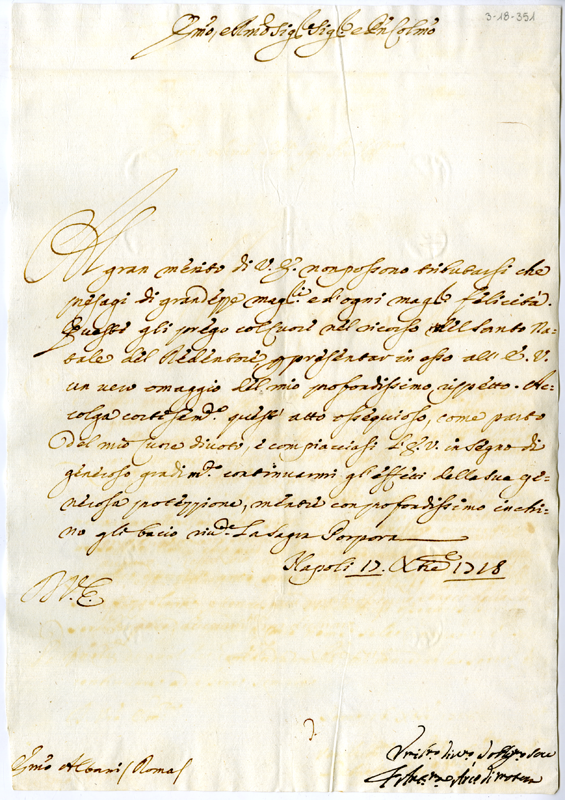 3-18-351
Emo, e Rmo Sig.r Sig.r e Pn Colmo
Al gran merito di V. E. non possono tributarsi che
presagi di grandezze mag.ri e d'ogni mag.re felicità.
Queste gli prego col cuore nel ricorso del Santo Na-
tale del Redentore, p presentar in esso all' E. V.
un vero omaggio del mio profondissimo rispetto. Ac-
colga cortesem.te questo atto ossequioso, come parto
del mio cuore divoto, e compiacciasi l'E. V. in segno di
generoso gradim.to continuarmi gl'effetti della sua ge-
nerosa protezzione, mentre con profondissimo inchi-
no gli bacio riv.te La Sagra Porpora
Napoli 17. Xbre 1718
D V. E.
Emo Albani / Roma /